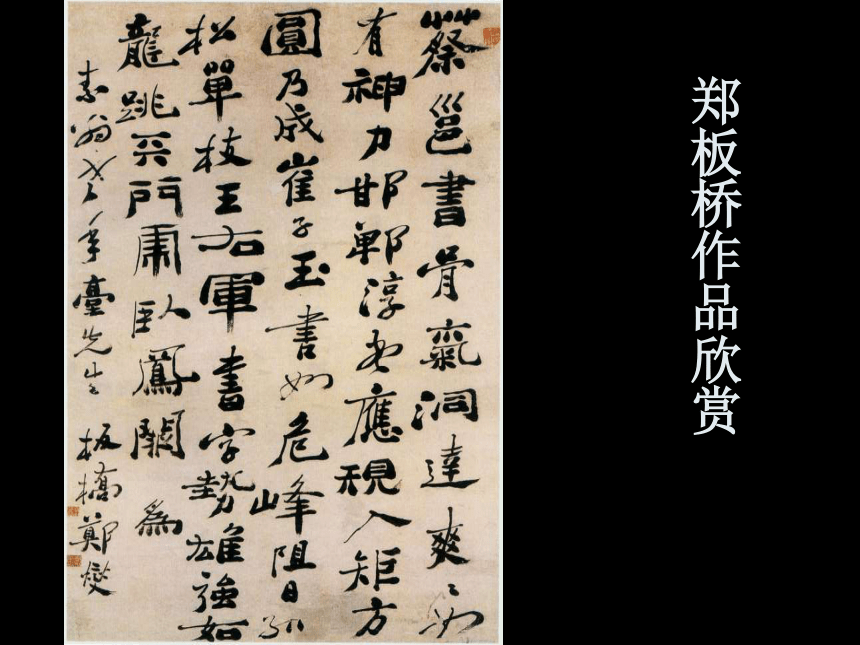 郑板桥作品欣赏
蔡邕書骨氣洞達爽〻如
有神力邯鄲淳書應規入矩方
圓乃成崔子玉書如危峰阻日孤
松單枝王右軍書字勢雄強如
龍跳天門虎臥鳳闕 為
素翁老年臺先生 板橋鄭燮